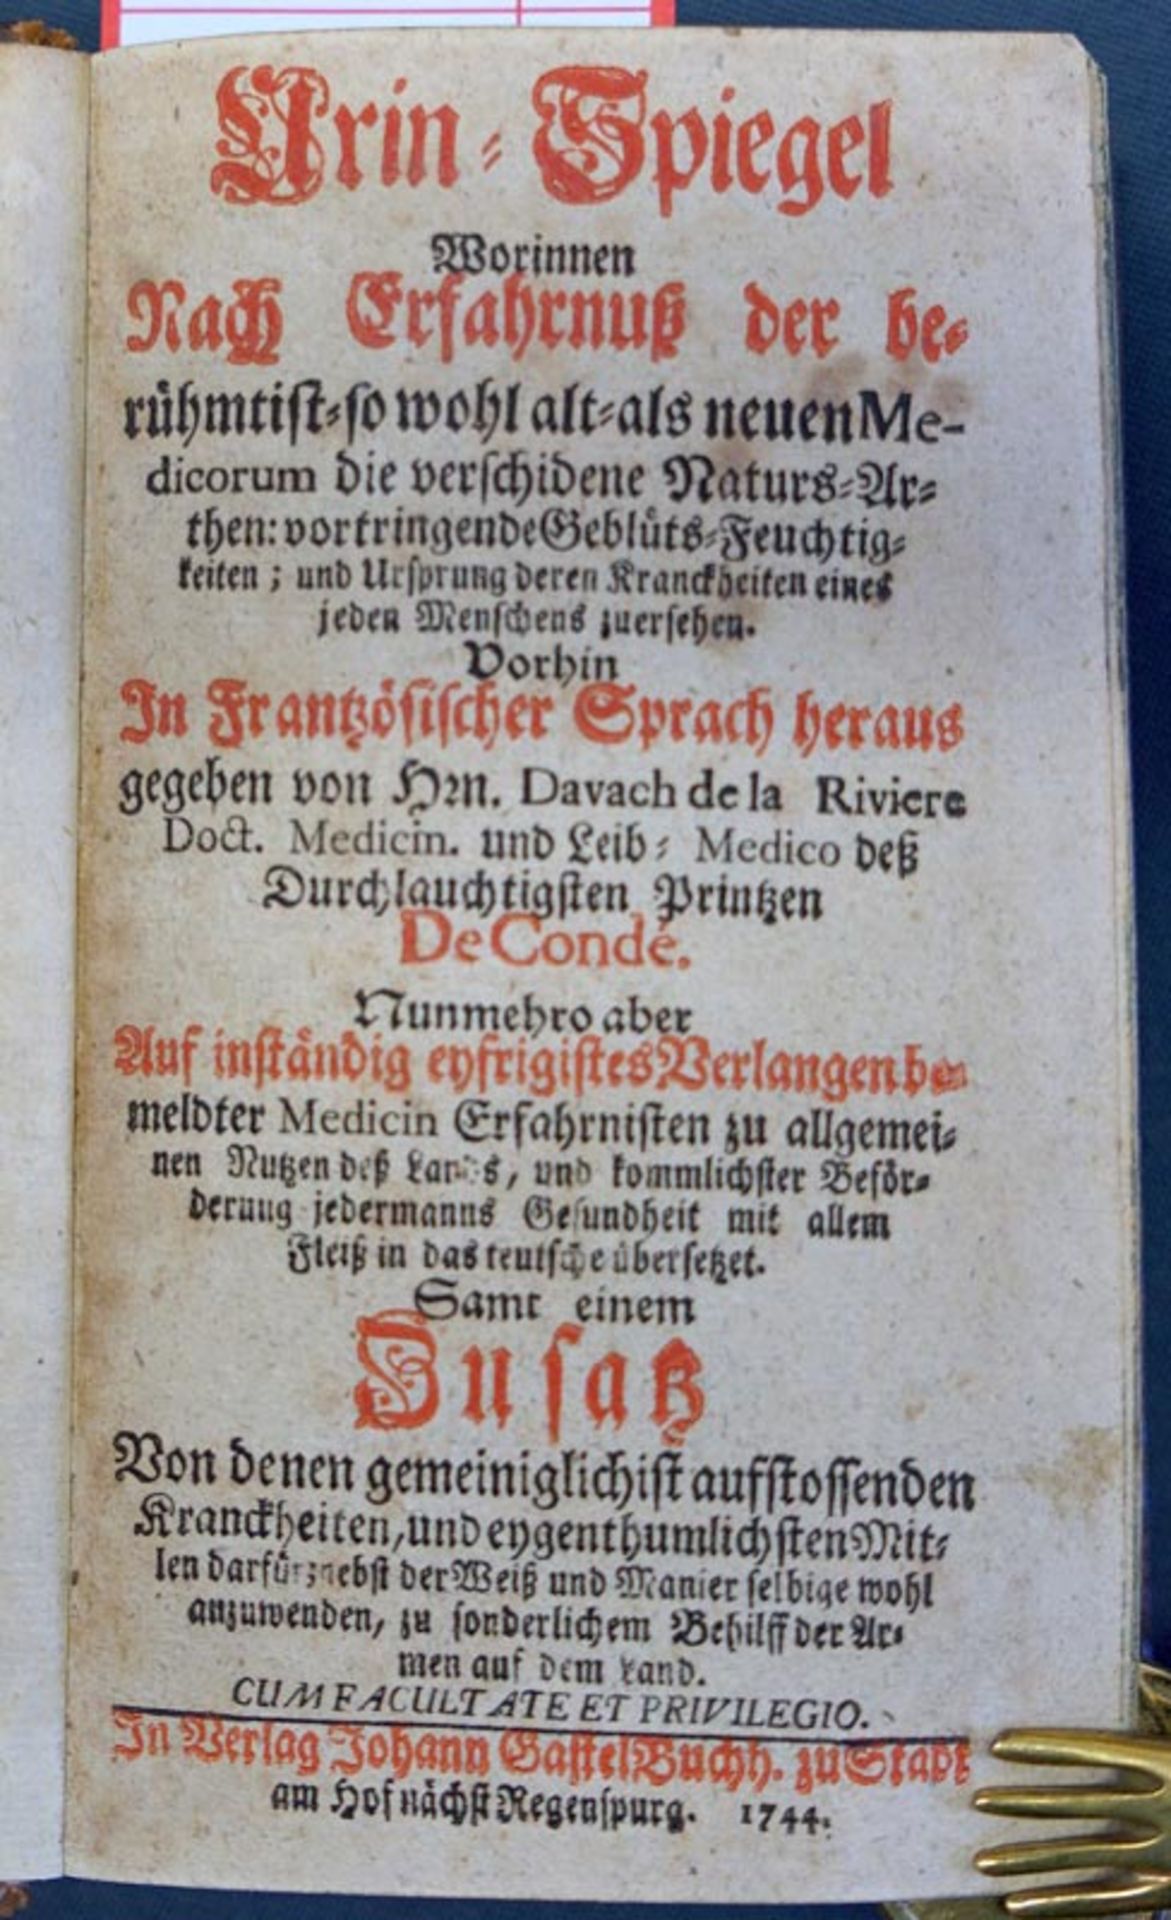 Urin-Spiegel
Worinnen
Nach Erfahrnuß der be-
rühmtist-so wohl alt-als neuen Me-
dicorum die verschidene Naturs-Ar-
then: vortringende Geblüts-Feuchtig-
keiten; und Ursprung deren Kranckheiten eines
jeden Menschens zuersehen.
Vorhin
In Frantzösischer Sprach heraus
gegeben von Hrn. Davach de la Riviere
Doct. Medicin. und Leib-Medico deß
Durchlauchtigsten Printzen
De Condé.
Nunmehro aber
Auf inständig eyfrigistes Verlangen be-
meldter Medicin Erfahrnisten zu allgemei-
nen Nutzen deß Lands, und kommlichster Beför-
derung jedermanns Gesundheit mit allem
Fleiß in das teutsche übersetzet.
Samt einem
Zusatz
Von denen gemeiniglichist aufstossenden
Kranckheiten, und eygenthumlichsten Mit-
len darfür; nebst der Weiß und Manier selbige wohl
anzuwenden, zu sonderlichem Behilff der Ar-
men auf dem Land.
CUM FACULTATE ET PRIVILEGIO.
In Verlag Johann Gastel Buchh. zu Stadt
am Hof nächst Regenspurg. 1744.